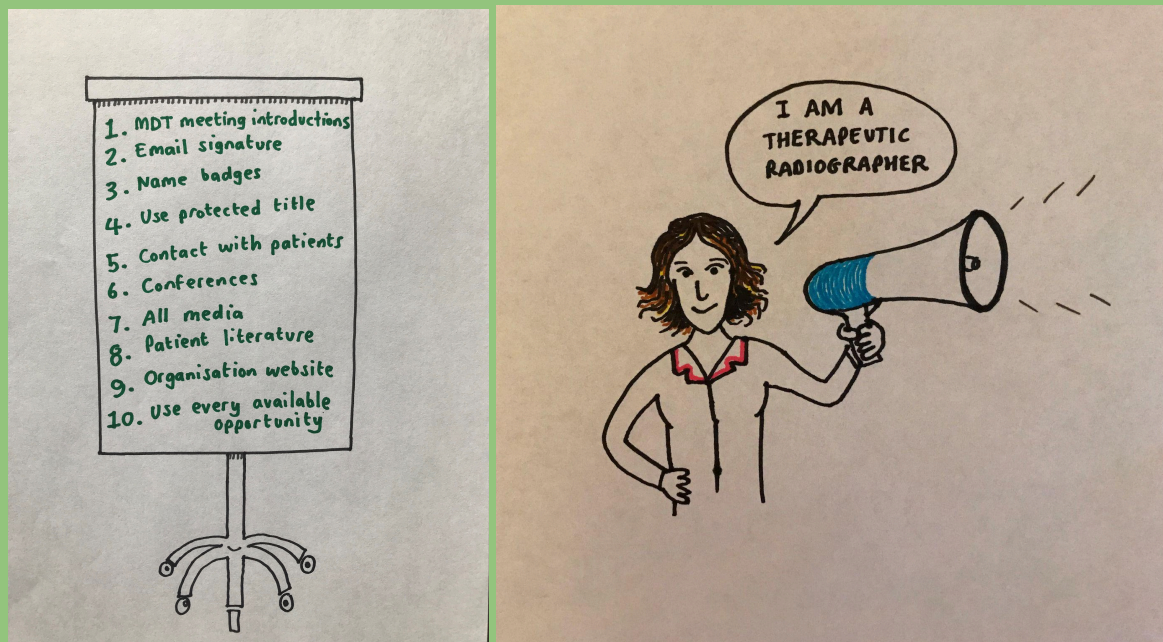 1. MDT meeting introductions
2. Email signature
3. Name badges
4. Use protected title
5. Contact with patients
6. Conferences
7. All media
8. Patient literature
9. Organisation website
10. Use every available
opportunity
I AM A
THERAPEUTIC
RADIOGRAPHER